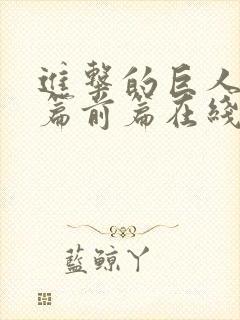 進擊的巨人
篇前篇在綫
藍鯨丫